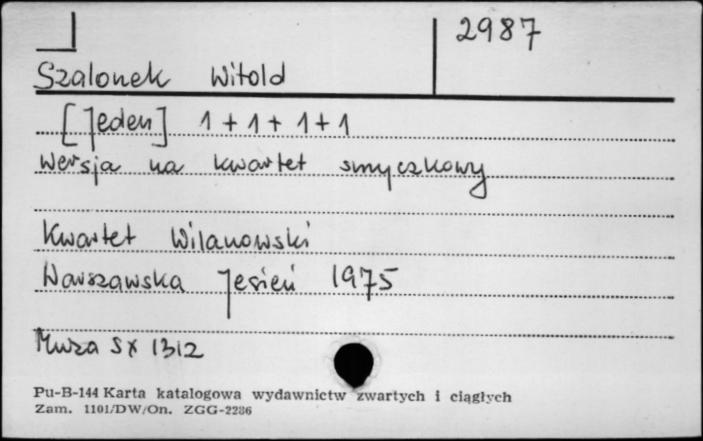 2987
Szalonek Witold
[Jeden] 1+1+1+1
wersja na kwartet smyczkowy
Kwartet Wilanowski
Warszawska Jesień 1975
Muza SX 1312
Pu-B-144 Karta katalogowa wydawnictw zwartych i ciągłych
Zam. 1101/DW/On. ZGG-2286